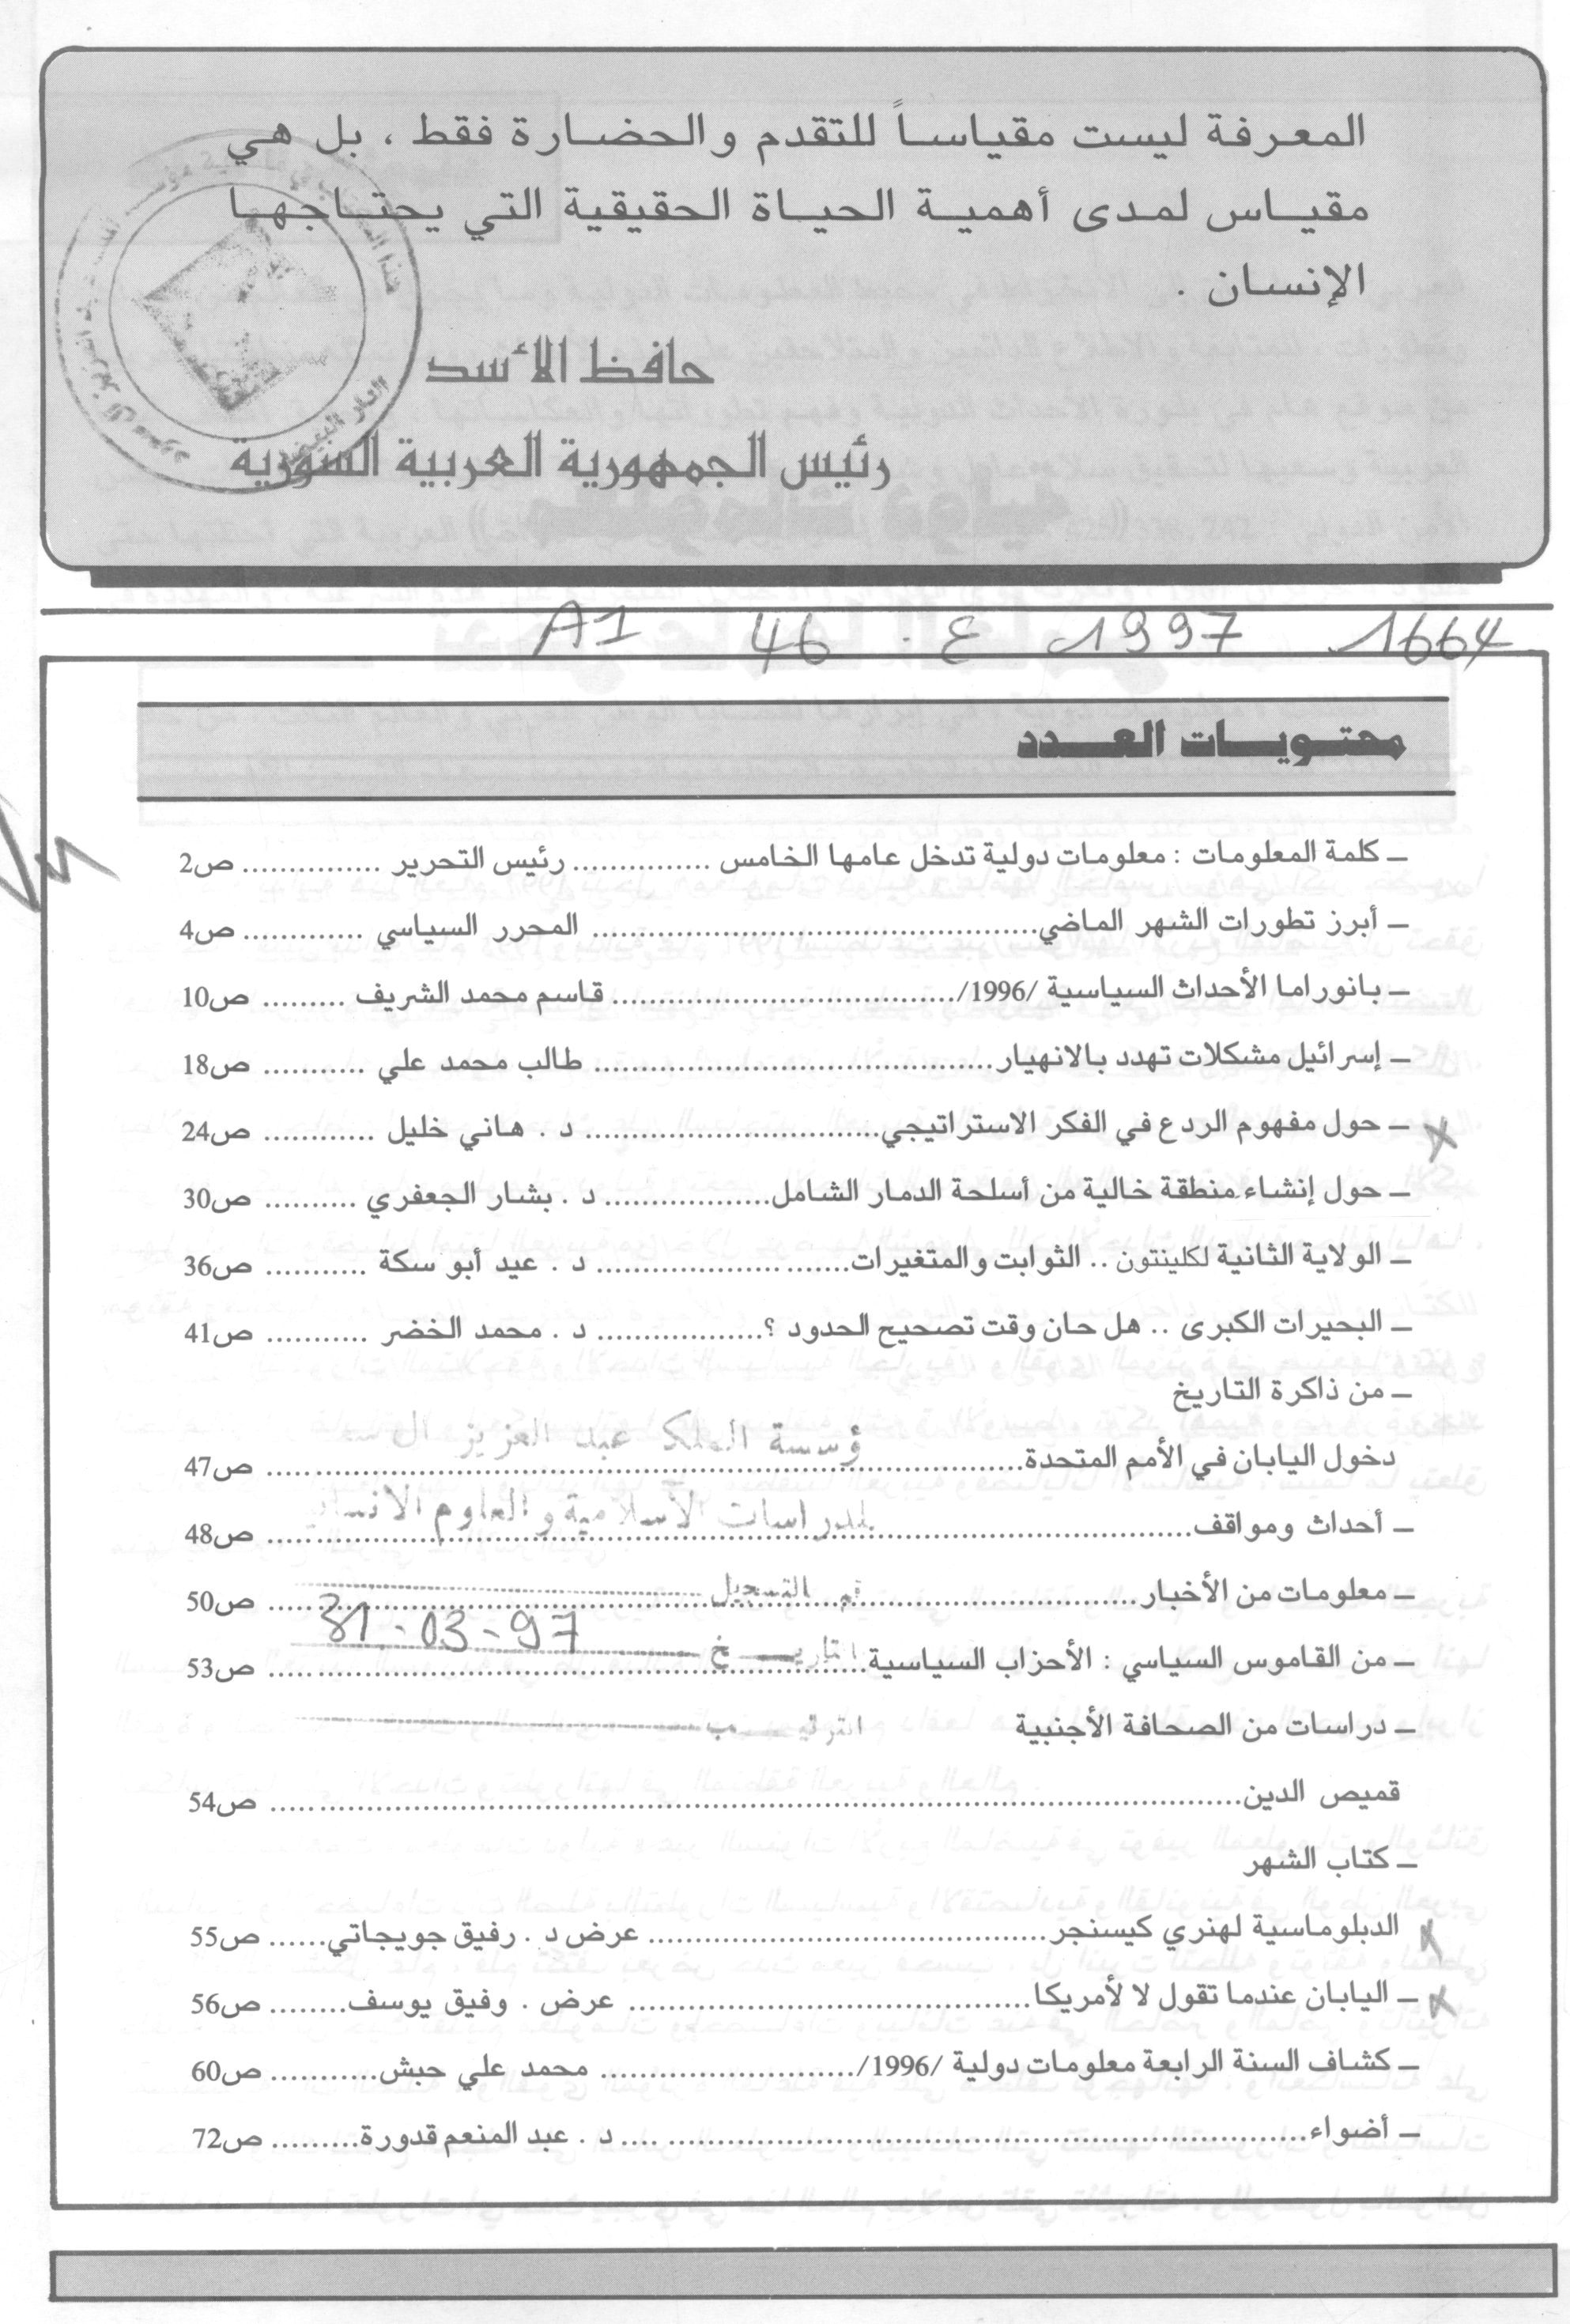 المعرفة ليست مقياساً للتقدم والحضارة فقط ، بل هي
مقياس لمدى أهمية الحياة الحقيقية التي يحتاجها
الإنسان .
حافظ الأسد
رئيس الجمهورية العربية السورية
A1 46 ع . 1997 1664
محتويات العدد
ـ كلمة المعلومات : معلومات دولية تدخل عامها الخامس ................ رئيس التحرير ............... ص2
ـ أبرز تطورات الشهر الماضي................................................ المحرر السياسي ............. ص4
ـ بانوراما الأحداث السياسية /1996/..................................... قاسم محمد الشريف ......... ص10
ـ إسرائيل مشكلات تهدد بالانهيار........................................... طالب محمد علي ........... ص18
ـ حول مفهوم الردع في الفكر الاستراتيجي................................ د . هاني خليل ............ ص24
ـ حول إنشاء منطقة خالية من أسلحة الدمار الشامل.................. د . بشار الجعفري .......... ص30
ـ الولاية الثانية لكلينتون .. الثوابت والمتغيرات........................... د . عيد أبو سكة ........... ص36
ـ البحيرات الكبرى .. هل حان وقت تصحيح الحدود ؟.................. د . محمد الخضر ........... ص41
ـ من ذاكرة التاريخ
ؤسسة الملك عبد العزيز ال
دخول اليابان في الأمم المتحدة........................................................................ ص47
للدراسات الاسلامية و العلوم الانسانية
ـ أحداث ومواقف........................................................................................ ص48
تم التسجيل
ـ معلومات من الأخبار................................................................................ ص50
التاريخ 31-03-97
ـ من القاموس السياسي : الأحزاب السياسية....................................................... ص53
الترتيب
ـ دراسات من الصحافة الأجنبية
قميص الدين............................................................................................ ص54
ـ كتاب الشهر
الدبلوماسية لهنري كيسنجر........................................... عرض د . رفيق جويجاتي...... ص55
ـ اليابان عندما تقول لا لأمريكا........................................... عرض . وفيق يوسف........ ص56
ـ كشاف السنة الرابعة معلومات دولية /1996/........................... محمد علي حبش............ ص60
ـ أضواء........................................................................ د . عبد المنعم قدورة......... ص72